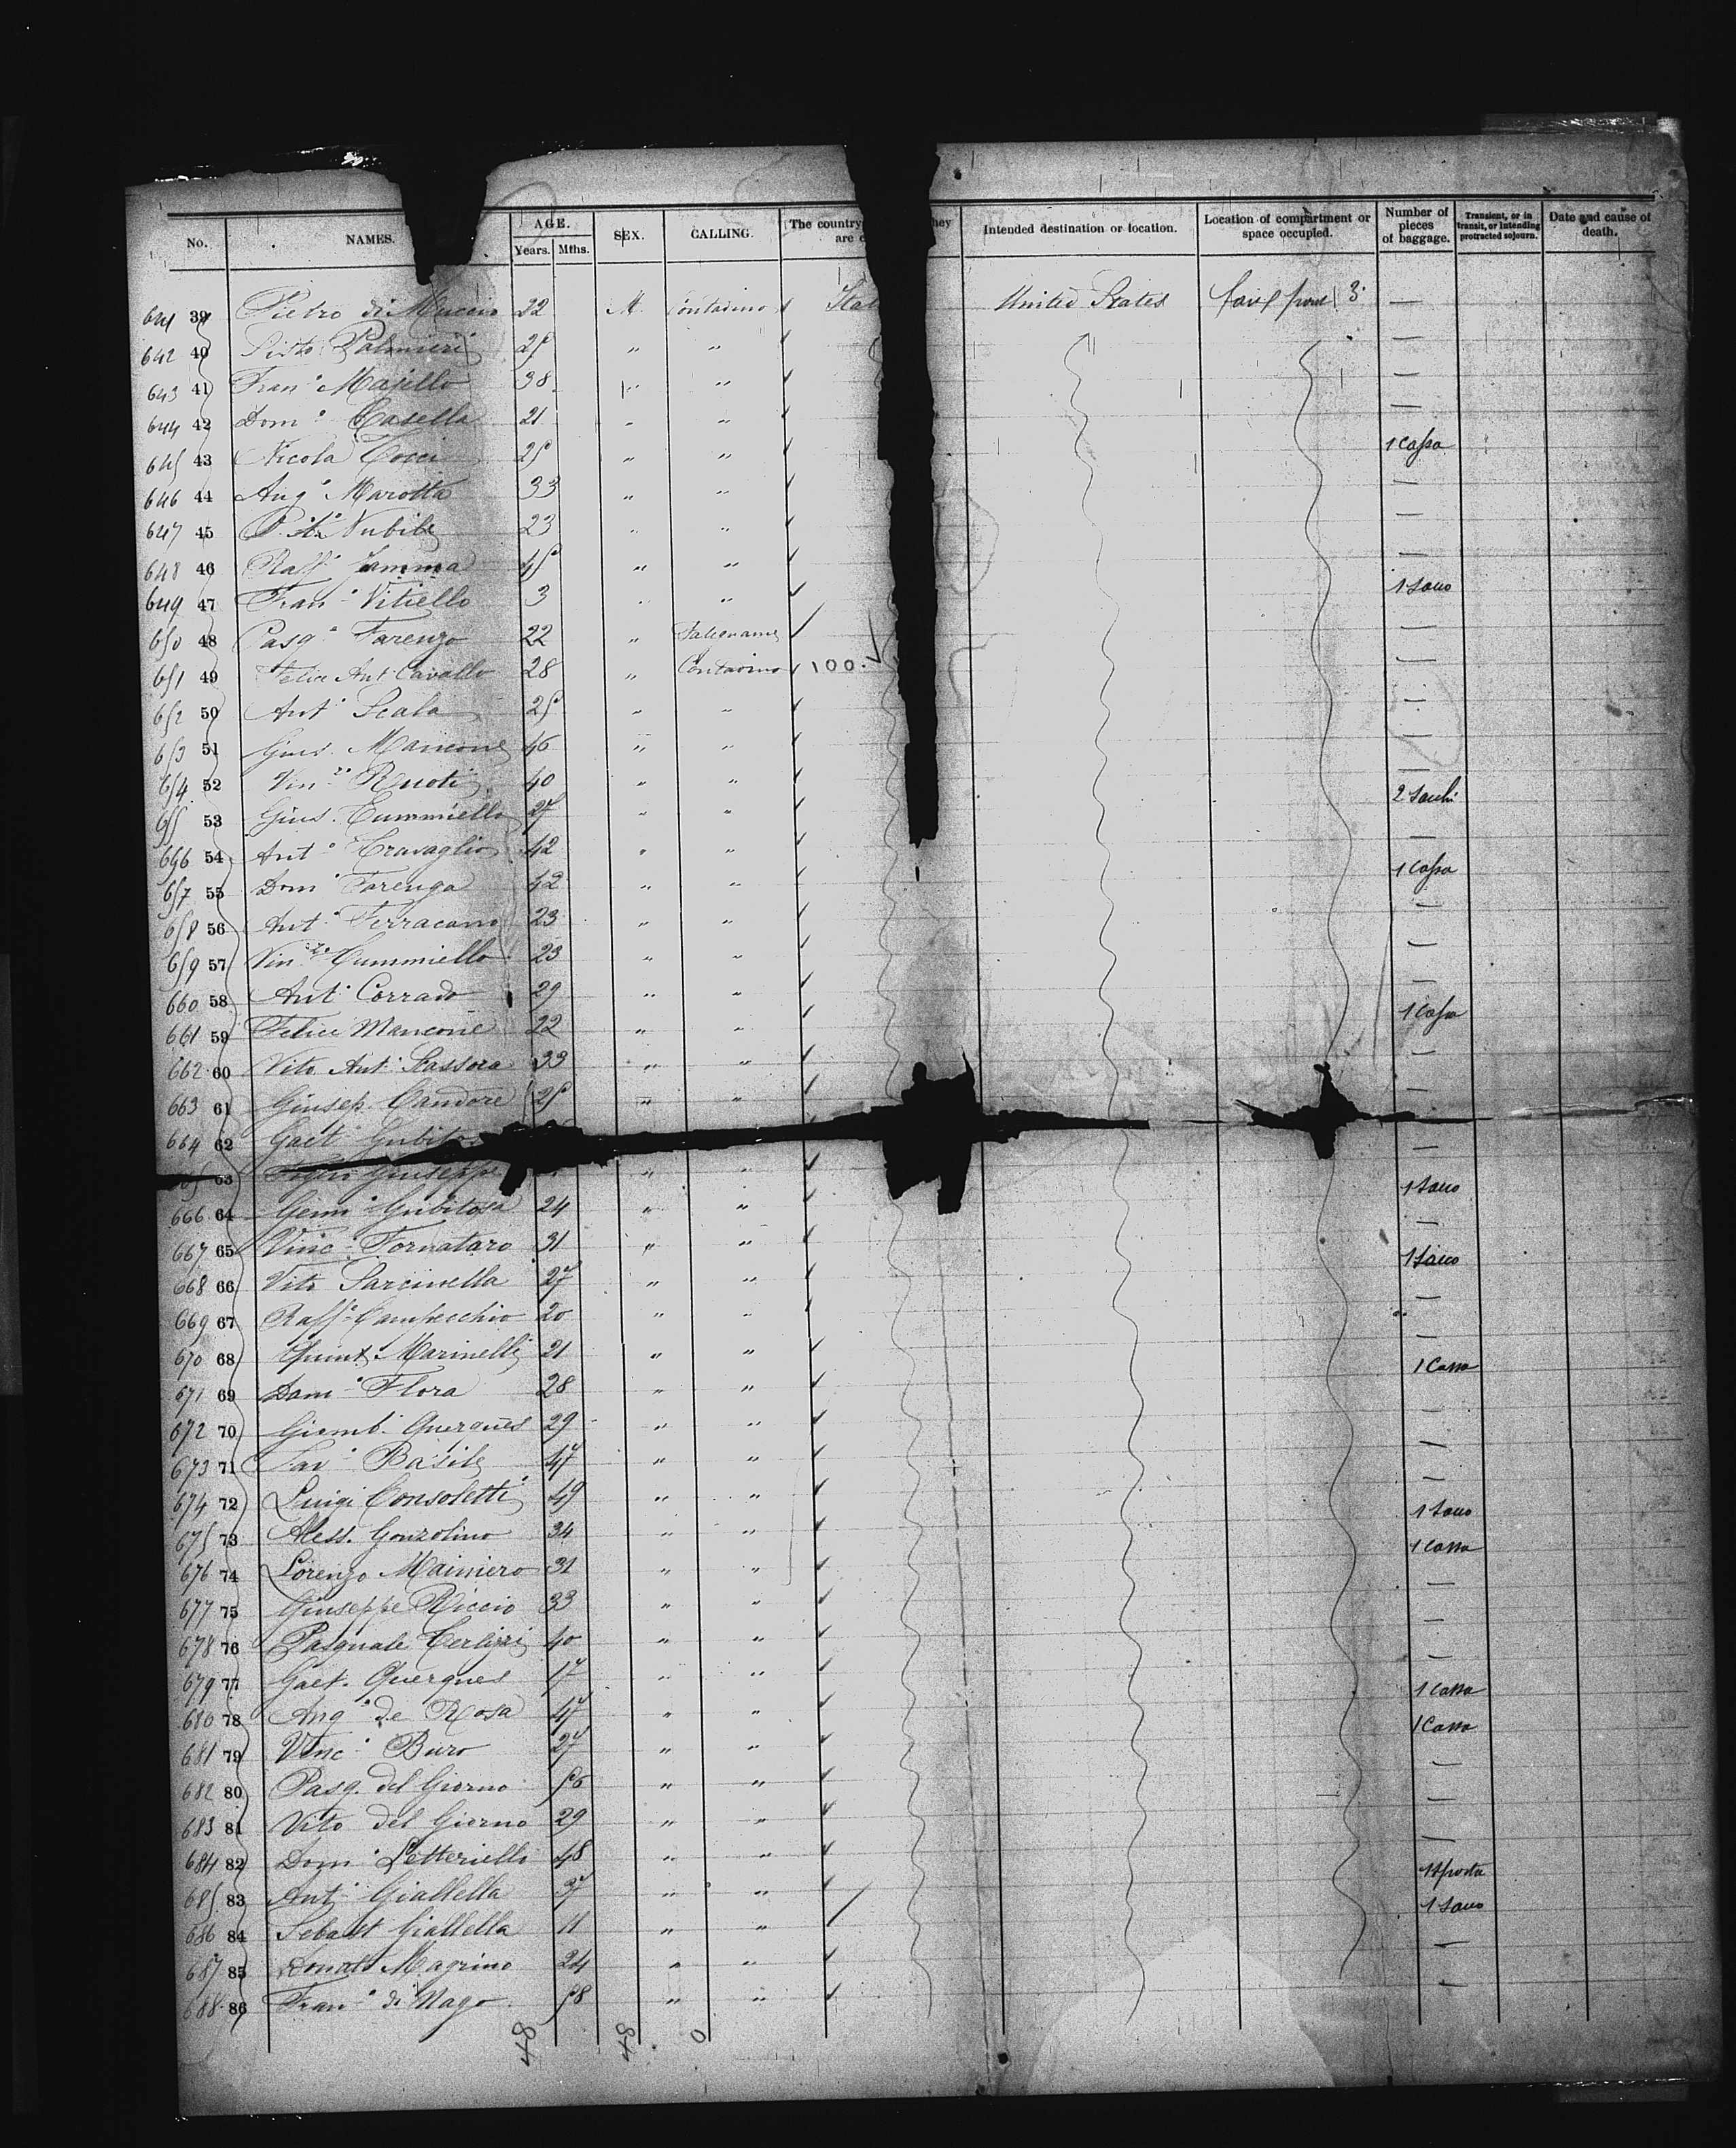 No. NAMES. AGE. Years. Mths. SEX. CALLING. The country they are Intended destination or location. Location of compartment or space occupied. Number of pieces of baggage. Transient, or in transit, or intending protracted sojourn. Date and cause of death.
641 39 Pietro di Muccio 22 M Contadino Ital United States 3 —
642 40 Palmieri 25 " " —
643 41 Fran° Majello 38 " " —
644 42 Dom° Casella 21 " " —
645 43 Nicola Cocci 25 " " 1 Cassa
646 44 Ang° Marotta 33 " " —
647 45 Nubile 23 " " —
648 46 Raff° Jamma 45 " " —
649 47 Fran° Vitiello 3 " " 1 Sacco
650 48 Pasq° Farenga 22 " Falegname —
651 49 Felice Ant° Cavallo 28 " Contadino 100 —
652 50 Ant° Scala 25 " " —
653 51 Gius. Mancone 46 " " —
654 52 Vin° Ruoti 40 " " —
655 53 Gius. Cummiello 27 " " 2 Sacchi
656 54 Ant° Travaglio 42 " " —
657 55 Dom° Farenga 42 " " 1 Cassa
658 56 Ant° Ferracano 23 " " —
659 57 Vin° Cummiello 23 " " —
660 58 Ant° Corrado 29 " " —
661 59 Felice Mancone 22 " " 1 Cassa
662 60 Vito Ant° Sassora 33 " " —
663 61 Giusep. Candore 25 " " —
664 62 Gaet° Gubitos —
63 Giuseppe " " 1 Sacco
666 64 Genn° Gubitosa 24 " " —
667 65 Vinc° Fornataro 31 " " 1 Sacco
668 66 Vito Sarcinella 27 " " —
669 67 Raff° Cambecchio 20 " " —
670 68 Quint. Marinelli 21 " " 1 Cassa
671 69 Dam° Flora 28 " " —
672 70 Giamb° Querques 29 " " —
673 71 Sav° Basile 47 " " —
674 72 Luigi Consoletti 49 " " 1 Sacco
675 73 Aless. Gonzolino 34 " " 1 Cassa
676 74 Lorenzo Mainiero 31 " " —
677 75 Giuseppe Riccio 33 " " —
678 76 Pasquale Cerlizzi 40 " " —
679 77 Gaet. Querques 17 " " 1 Cassa
680 78 Ang° de Rosa 47 " " 1 Cassa
681 79 Vinc° Buro 27 " " —
682 80 Pasq. del Giorno 56 " " —
683 81 Vito del Giorno 29 " " —
684 82 Dom° Letteriello 48 " " 1 Sporta
685 83 Ant° Giallella 37 " " 1 Sacco
686 84 Sebast Giallella 11 " " —
687 85 Donato Magrino 24 " " —
688 86 Fran° di Nago 58 " "
84 84 0